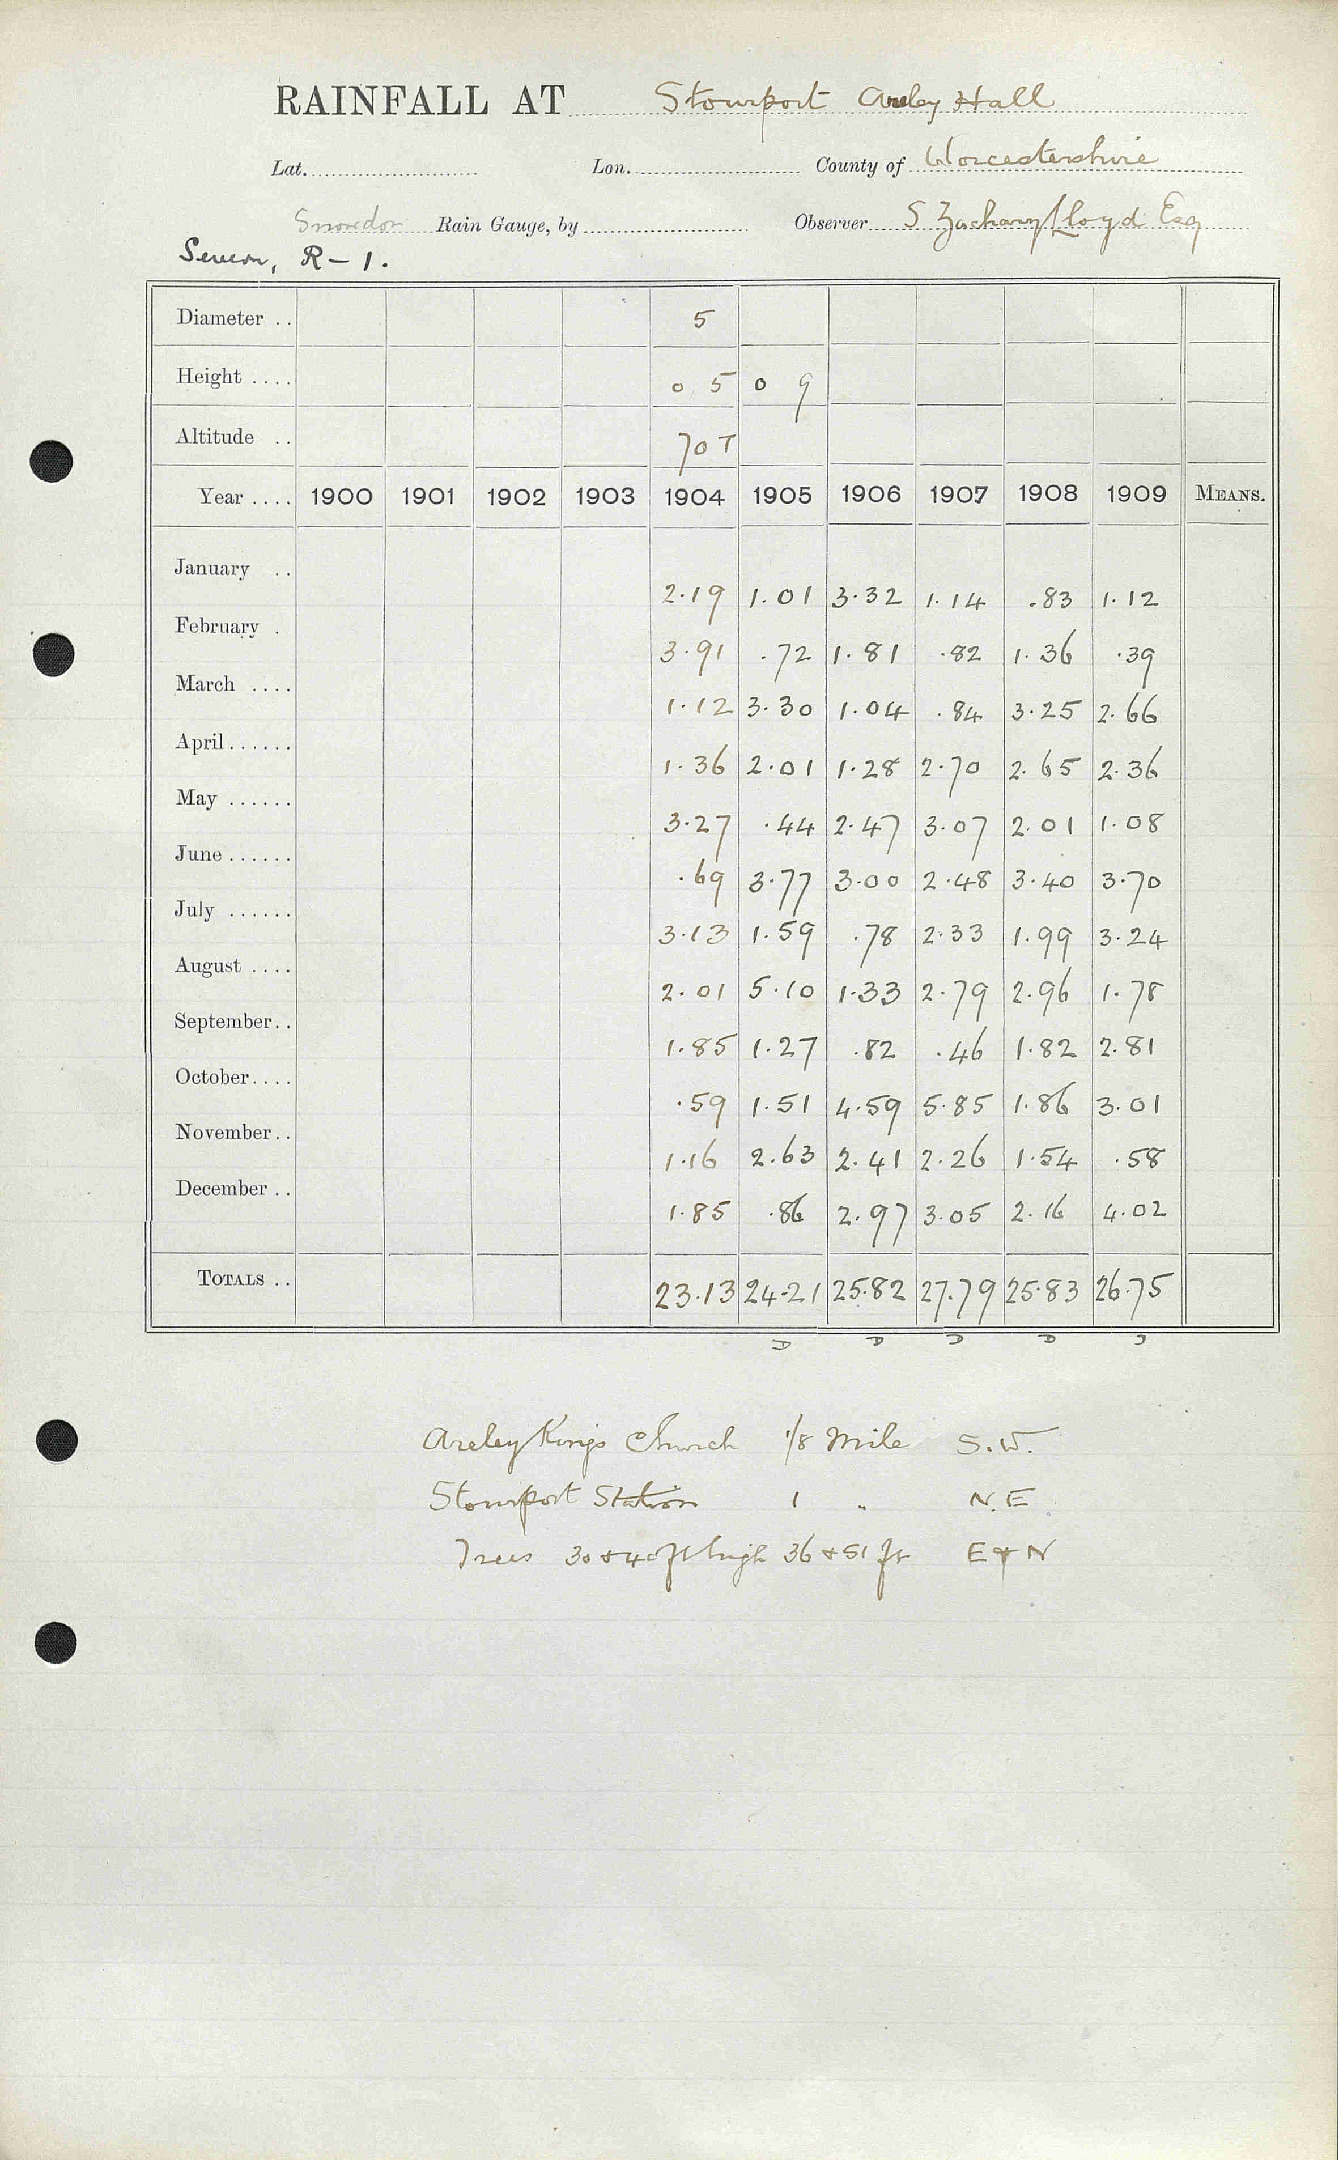 RAINFALL AT Stourport Areley Hall
Lat. Lon. County of Worcestershire
Snowdon Rain Gauge, by Observer S Zachary Lloyd Esq
Severn, R-1.
Diameter .. 5
Height .... 0 5 0 9
Altitude .. 70 T
Year .... 1900 1901 1902 1903 1904 1905 1906 1907 1908 1909 MEANS.
January .. 2.19 1.01 3.32 1.14 .83 1.12
February . 3.91 .72 1.81 .82 1.36 .39
March .... 1.12 3.30 1.04 .84 3.25 2.66
April...... 1.36 2.01 1.28 2.70 2.65 2.36
May ...... 3.27 .44 2.47 3.07 2.01 1.08
June...... .69 3.77 3.00 2.48 3.40 3.70
July ...... 3.13 1.59 .78 2.33 1.99 3.24
August .... 2.01 5.10 1.33 2.79 2.96 1.78
September.. 1.85 1.27 .82 .46 1.82 2.81
October.... .59 1.51 4.59 5.85 1.86 3.01
November.. 1.16 2.63 2.41 2.26 1.54 .58
December .. 1.85 .86 2.97 3.05 2.16 4.02
TOTALS .. 23.13 24.21 25.82 27.79 25.83 26.75
D D D D D
Areley Kings Church 1/8 Mile S.W.
Stourport Station 1 " N.E
Trees 30 & 40 ft high 36 & 51 ft E & N